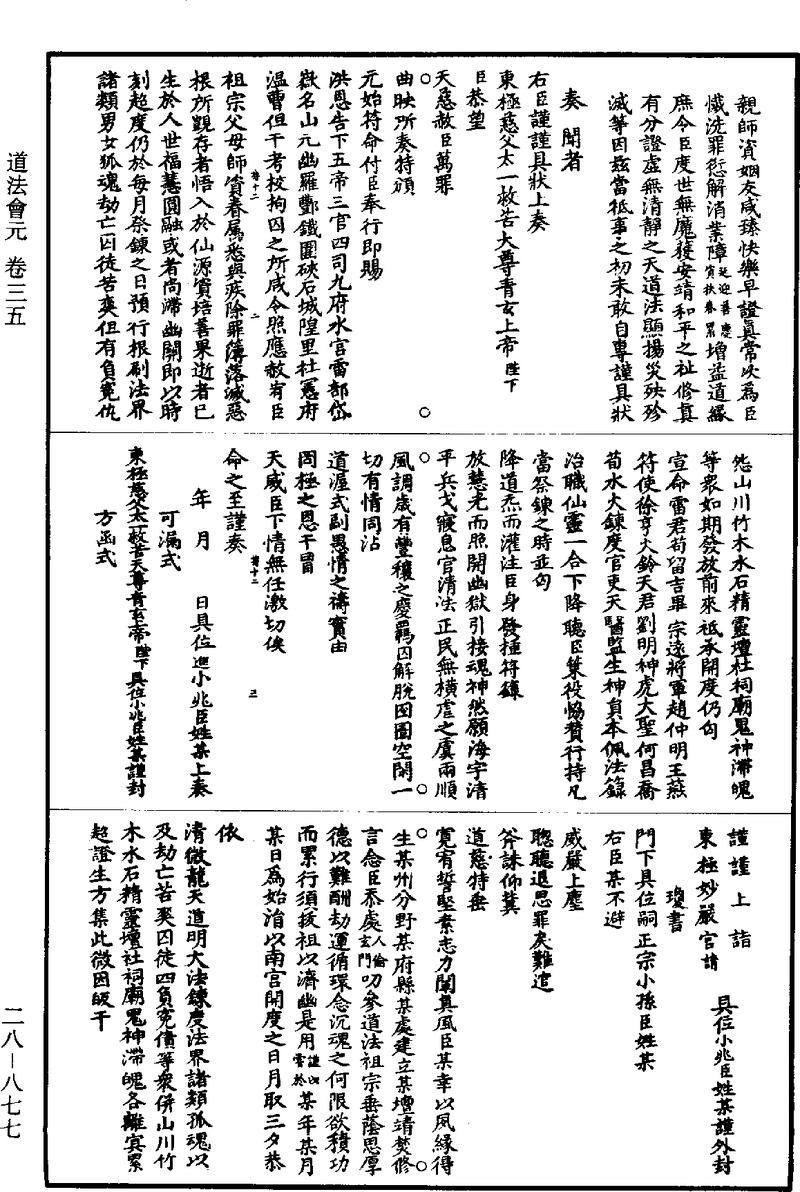 道法會元 卷三五
二八—八七七
親師資姻友咸臻快樂早證真常次爲臣
懺洗罪愆解消業障延迎善慶資扶眷累增益道緣
庶令臣度世無魔獲安靖和平之祉修真
有分證虛無清靜之天道法顯揚災殃殄
滅等因兹當祗事之初未敢自專謹具狀
奏聞者
右臣謹謹具狀上奏
東極慈父太一救苦大尊青玄上帝陛下
臣恭望
天慈赦臣萬罪
曲映所奏特頒
元始符命付臣奉行即賜
洪恩告下五帝三官四司九府水官雷部岱
嶽名山元幽羅酆鐵圍硤石城隍里社冥府
溫曹但干考校拘囚之所咸令照應赦宥臣
祖宗父母師資眷屬悉與疾除罪簿落滅惡
根所覬存者悟入於仙源資培善果逝者已
生於人世福慧圓融或者尚滯幽關即以時
刻超度仍於每月祭鍊之日預行根刷法界
諸類男女孤魂劫亡囚徒苦爽但有負冤仇
怨山川竹木水石精靈壇社祠廟鬼神滯魄
等衆如期發放前來祗承開度仍勾
宣命雷君苟留吉畢宗遠將軍趙仲明王燕
符使徐亨大鈴天君劉明神虎大聖何昌喬
荀水大鍊度官吏天醫監生神員本佩法籙
治職仙靈一合下降聽臣策役恊贊行持凡
當祭鍊之時並勾
降道炁而灌注臣身發揮符籙
放慧光而照開幽獄引接魂神然願海宇清
平兵戈寢息官清法正民無橫虐之虞雨順
風調歲有豐穰之慶羈囚解脫囹圄空閑一
切有情同沾
道渥式副愚情之禱實由
罔極之恩干冒
天威臣下情無任激切俟
命之至謹奏
年 月 日具位進小兆臣姓某上奏
可漏式
東極慈父太一救苦天尊青玄上帝陛下具位小兆臣姓某謹封
方函式
謹謹上詣
東極妙嚴宮請 具位小兆臣姓某謹外封
瓊書
門下具位嗣正宗小孫臣姓某
右臣某不避
威嚴上塵
聰聽退思罪戾難逭
斧誅仰冀
道慈特垂
寬宥誓堅素志力闡真風臣某幸以夙緣得
生某州分野某府縣某處建立某壇靖焚修
言念臣忝處人倫玄門叨參道法祖宗垂蔭恩厚
德以難酬劫運循環念沉魂之何限欲積功
而累行須拔祖以濟幽是用謹以某年某月
某日爲始涓以南宮開度之日月取三夕恭
依
清微龍天道明大法鍊度法界諸類孤魂以
及劫亡苦爽囚徒四負冤債等衆併山川竹
木水石精靈壇社祠廟鬼神滯魄各離冥累
超證生方集此微因皈干